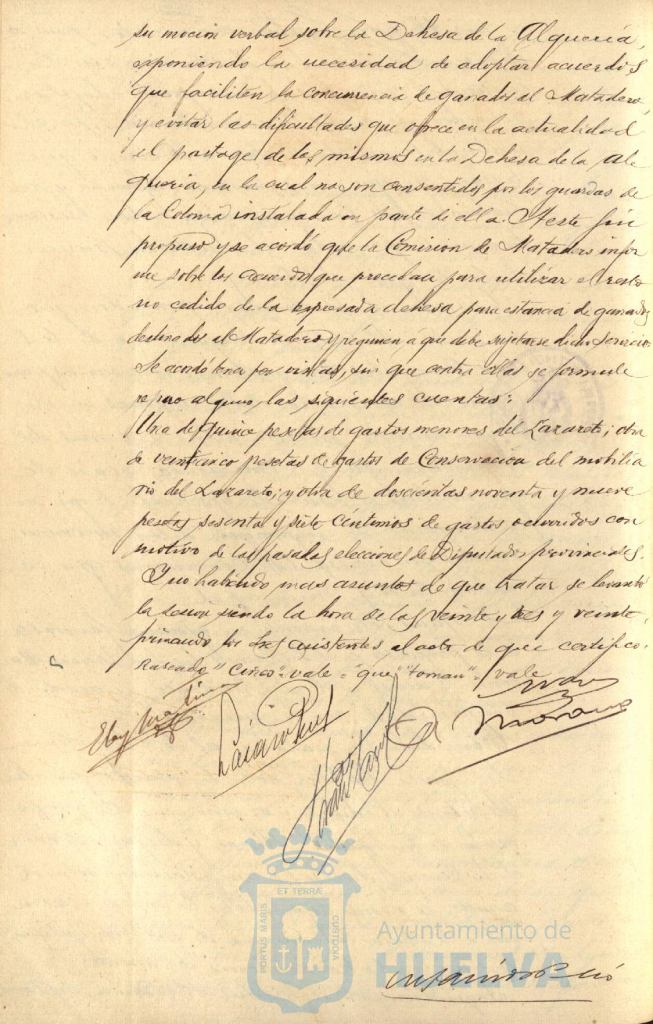 su mocion verbal sobre la Dehesa de la Alqueria,
exponiendo la necesidad de adoptar acuerdos
que faciliten la concurrencia de ganados al Matadero,
y evitar las dificultades que ofrece en la actualidad
el pastage de los mismos en la Dehesa de la Al
queria, en la cual no son consentidos por los guardas de
la Colonia instalada en parte de ella. A este fin
propuso y se acordó que la Comision de Matadero infor
me sobre los acuerdos que procedan para utilizar el resto
no cedido de la expresada dehesa para estancia de ganados
destinados al Matadero y régimen á que debe sujetarse dicho servicio.
Se acordó tener por vistas, sin que contra ellas se formule
reparo alguno, las siguientes cuentas:
Una de quince pesetas de gastos menores del Lazareto; otra
de veinticinco pesetas de gastos de Conservacion del mobilia
rio del Lazareto; y otra de doscientas noventa y nueve
pesetas sesenta y siete céntimos de gastos ocurridos con
motivo de las pasadas elecciones de Diputados provinciales.
Y no habiendo mas asuntos de que tratar se levantó
la sesion siendo la hora de las veinte y tres y veinte,
firmando los Sres asistentes al acto de que certifico.
Raspado "Cinco" vale = "que" "toman" vale
Moreno
ET TERRÆ
PORTUS MARIS
CUSTODIA
Ayuntamiento de
HUELVA